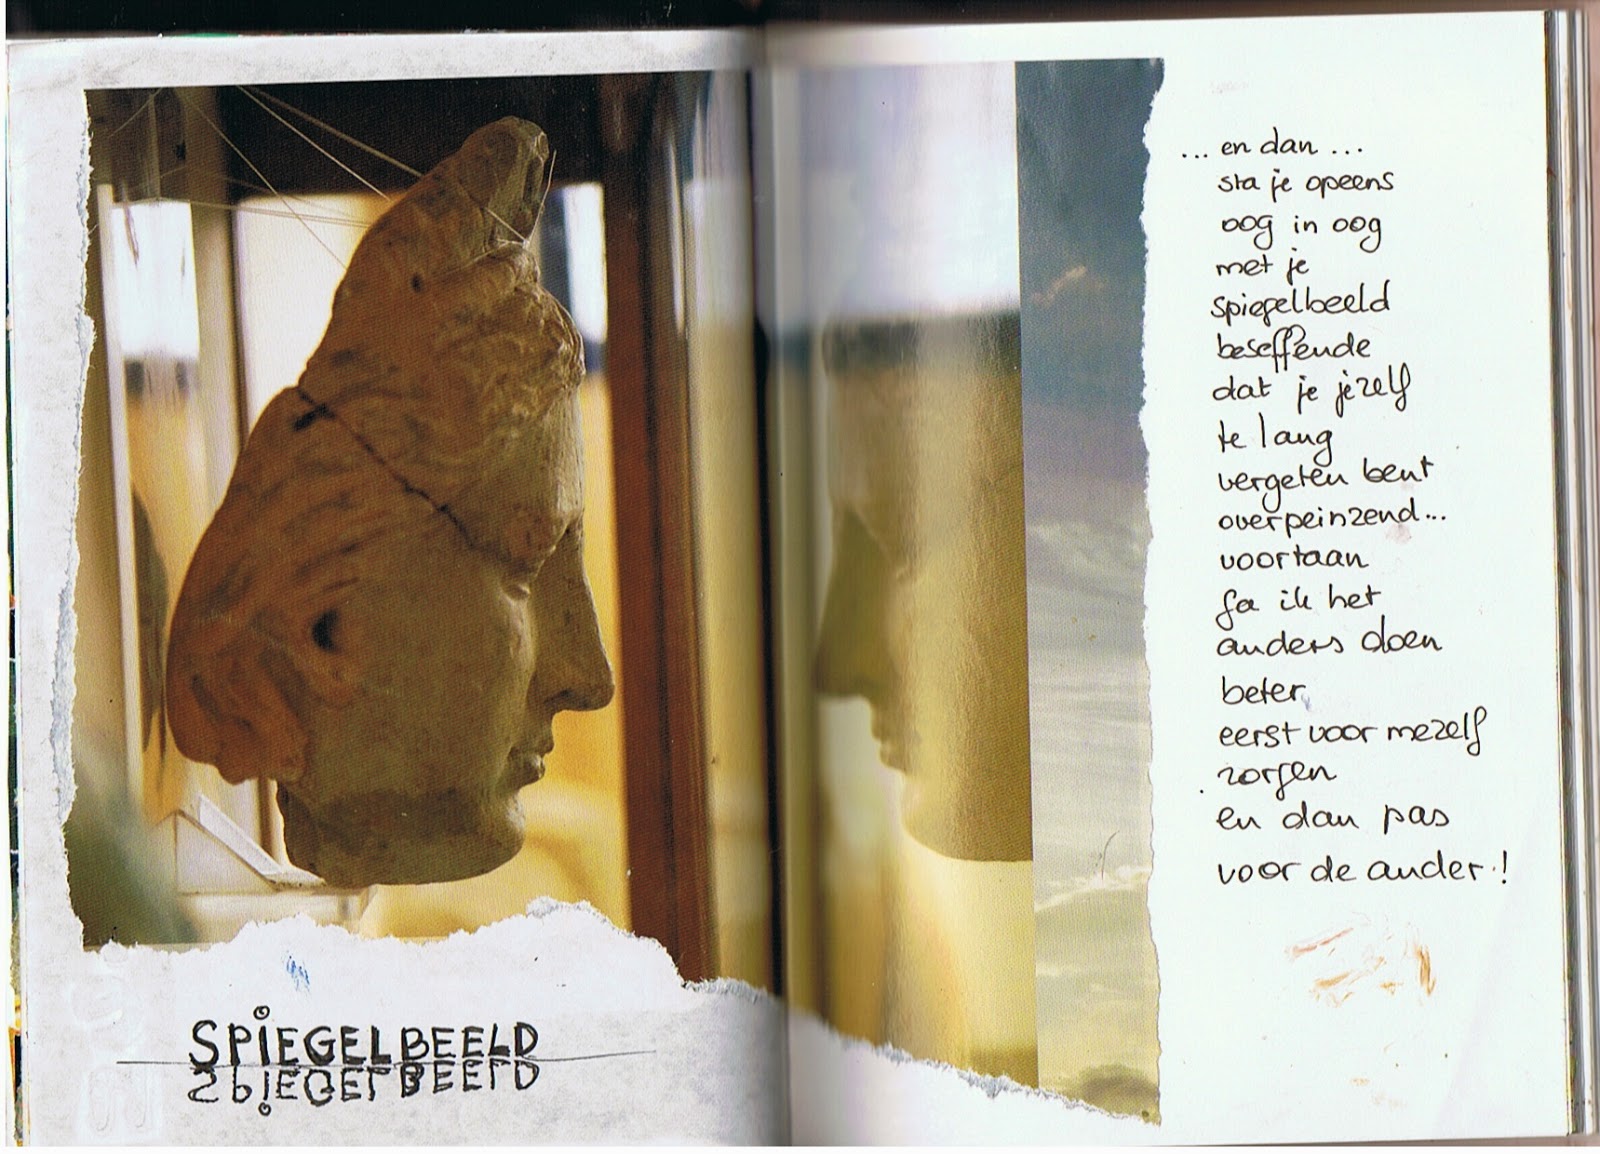 SPIEGELBEELD
SPIEGELBEELD
... en dan ...
sta je opeens
oog in oog
met je
spiegelbeeld
beseffende
dat je jezelf
te lang
vergeten bent
overpeinzend...
voortaan
ga ik het
anders doen
beter
eerst voor mezelf
zorgen
en dan pas
voor de ander!